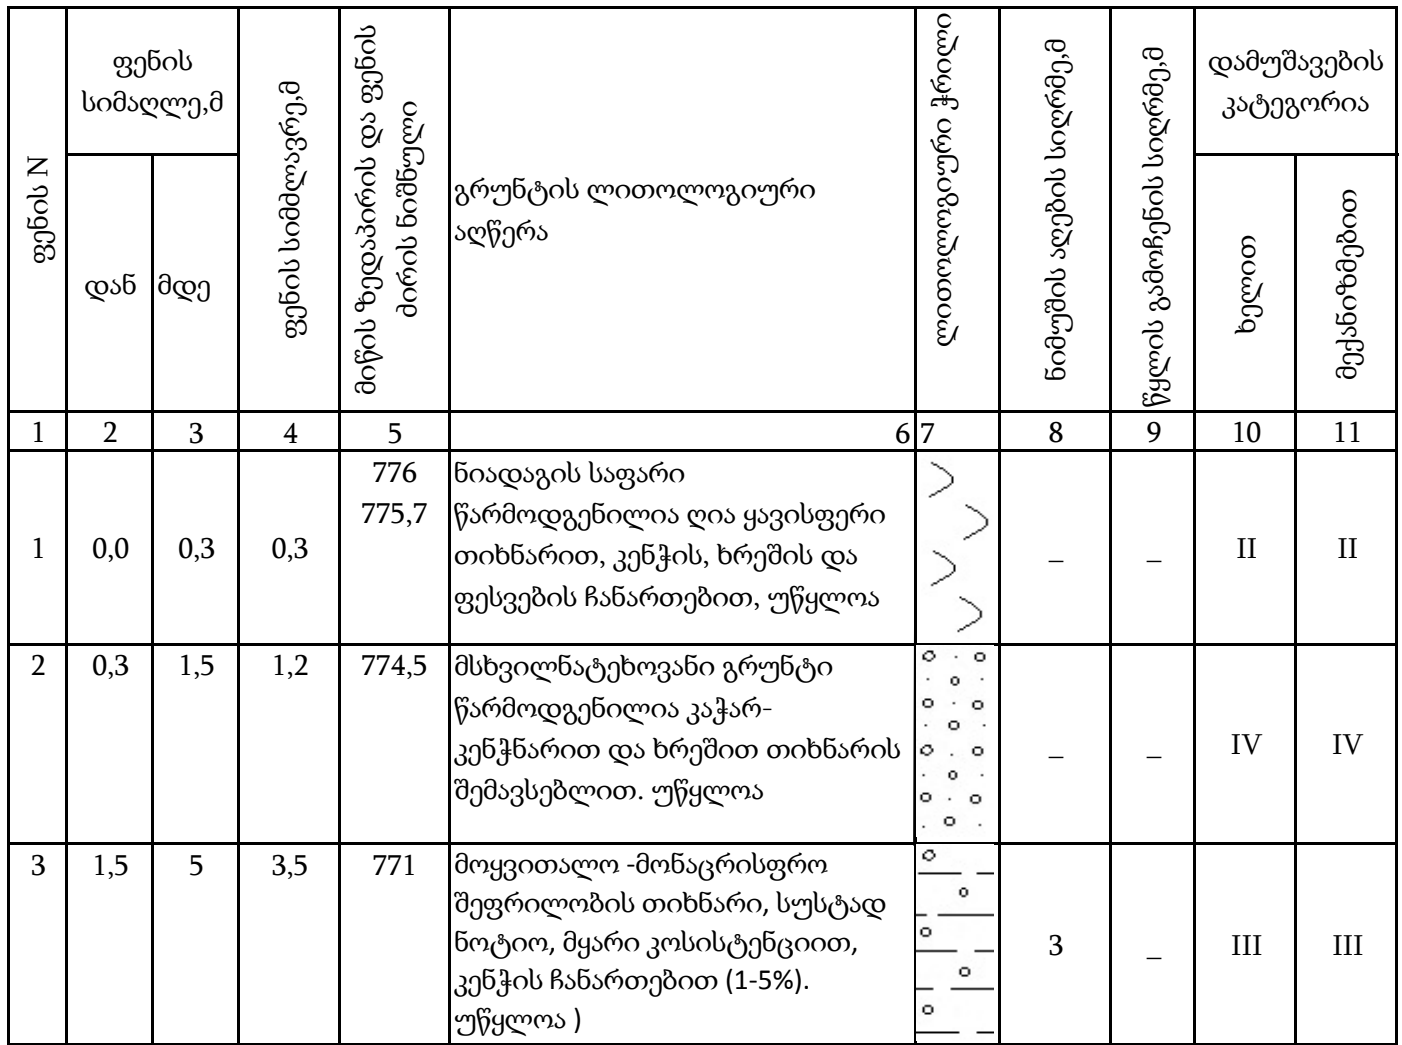 ფენის N
ფენის
სიმაღლე,მ
დან
მდე
ფენის სიმძლავრე,მ
მიწის ზედაპირის და ფენის
ძირის ნიშნული
გრუნტის ლითოლოგიური
აღწერა
ლითოლოგიური ჭრილი
ნიმუშის აღების სიღრმე,მ
წყლის გამოჩენის სიღრმე,მ
დამუშავების
კატეგორია
ხელით
მექანიზმებით
1 2 3 4 5 6 7 8 9 10 11
776 ნიადაგის საფარი
775,7 წარმოდგენილია ღია ყავისფერი
1 0,0 0,3 0,3 თიხნარით, კენჭის, ხრეშის და _ _ II II
ფესვების ჩანართებით, უწყლოა
2 0,3 1,5 1,2 774,5 მსხვილნატეხოვანი გრუნტი
წარმოდგენილია კაჭარ-
კენჭნარით და ხრეშით თიხნარის _ _ IV IV
შემავსებლით. უწყლოა
3 1,5 5 3,5 771 მოყვითალო -მონაცრისფრო
შეფრილობის თიხნარი, სუსტად
ნოტიო, მყარი კოსისტენციით, 3 _ III III
კენჭის ჩანართებით (1-5%).
უწყლოა )